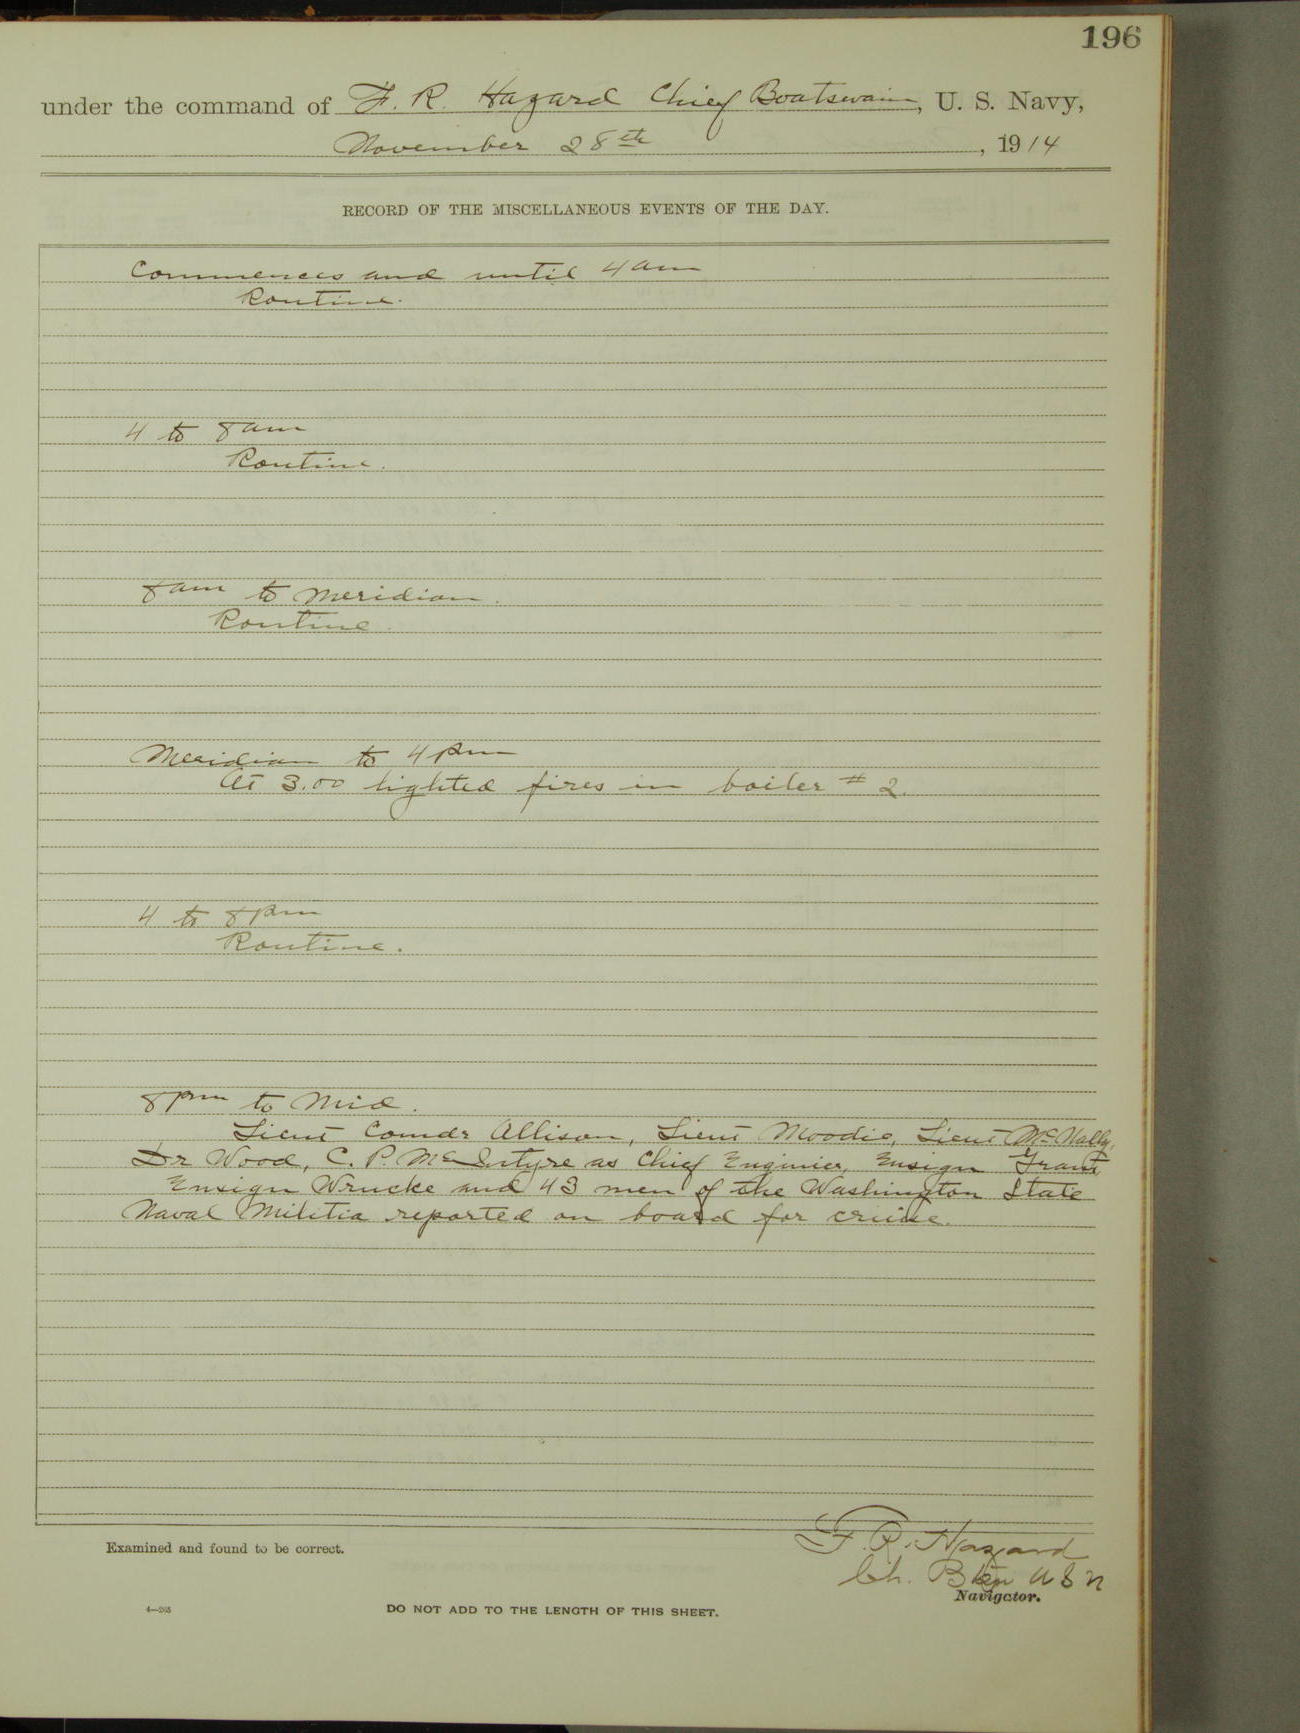 196
under the command of F. R. Hazard Chief Boatswain, U. S. Navy,
November 28th, 1914
RECORD OF THE MISCELLANEOUS EVENTS OF THE DAY.
Commences and until 4 am
Routine.
4 to 8 am
Routine.
8 am to Meridian.
Routine.
Meridian to 4 pm
At 3.00 lighted fires in boiler # 2.
4 to 8 pm
Routine.
8 pm to Mid.
Lieut Comdr Allison, Lieut Moodie, Lieut McNally,
Dr Wood, C. P. McIntyre as Chief Enginier, Ensign Grant
Ensign Wrucke and 43 men of the Washington State
Naval Militia reported on board for cruise.
F. R. Hazard
Examined and found to be correct.
Ch. Btsn U S N
Navigator.
4—265
DO NOT ADD TO THE LENGTH OF THIS SHEET.